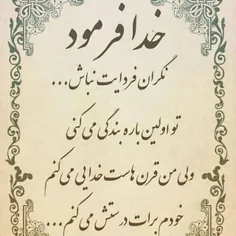 خدا فرمود
نگران فردایت نباش...
تو اولین باره بندگی می کنی
ولی من قرن هاست خدایی می کنم
خودم برات درستش می کنم...